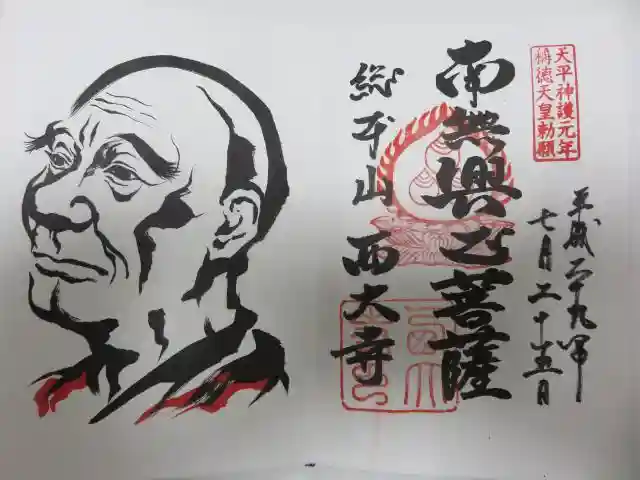 天平神護元年
称徳天皇勅願
平成二十九年
七月二十五日
南無興正菩薩
総本山 西大寺